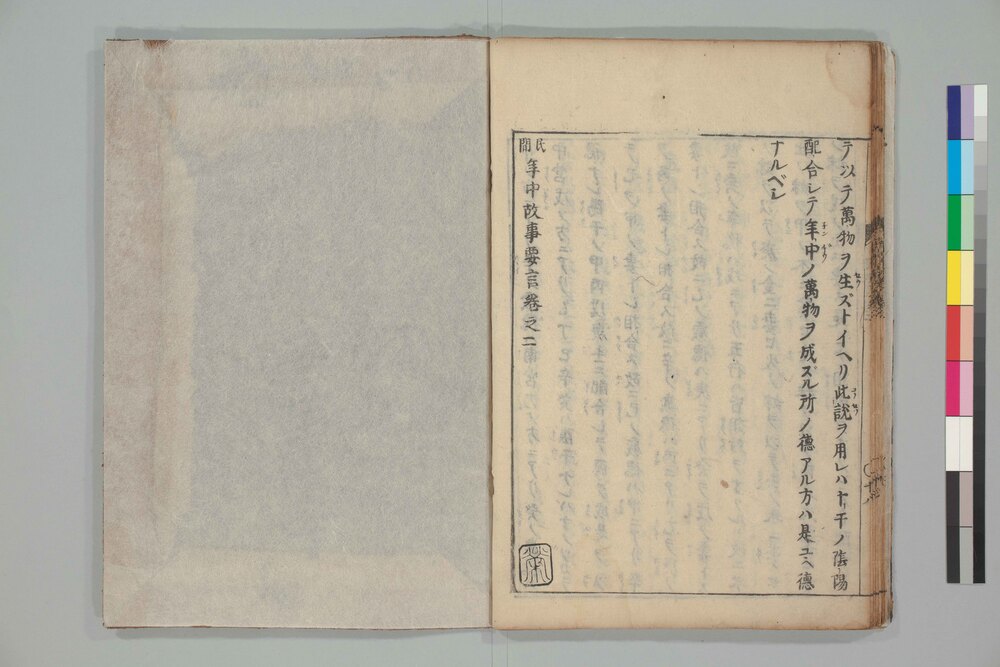 テ以テ萬物ヲ生ズトイヘリ此說ヲ用レハ十干ノ陰陽
配合シテ年中ノ萬物ヲ成ズル所ノ德アル方ハ是ユヘ德
ナルベシ
民間年中故事要言卷之二